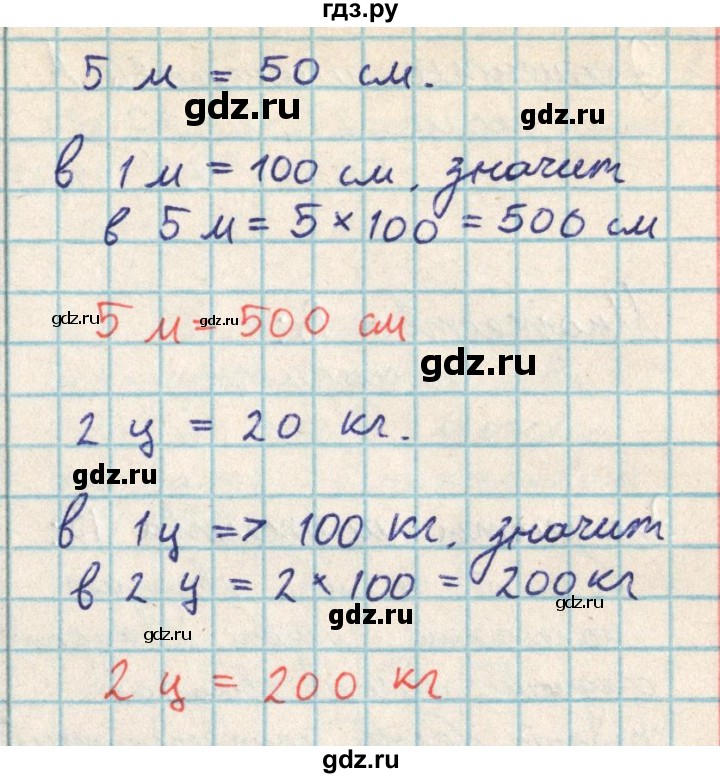 гдз.ру
5 м = 50 см.
gdz.ru
gdz.ru
в 1 м = 100 см, значит
в 5 м = 5 × 100 = 500 см
gdz.ru
gdz.ru
5 м = 500 см
gdz.ru
2 ц = 20 кг.
gdz.ru
в 1ц => 100 кг, значит
в 2 ц = 2 × 100 = 200 кг
gdz.ru
gdz.ru
gdz.ru
2 ц = 200 кг
gdz.ru